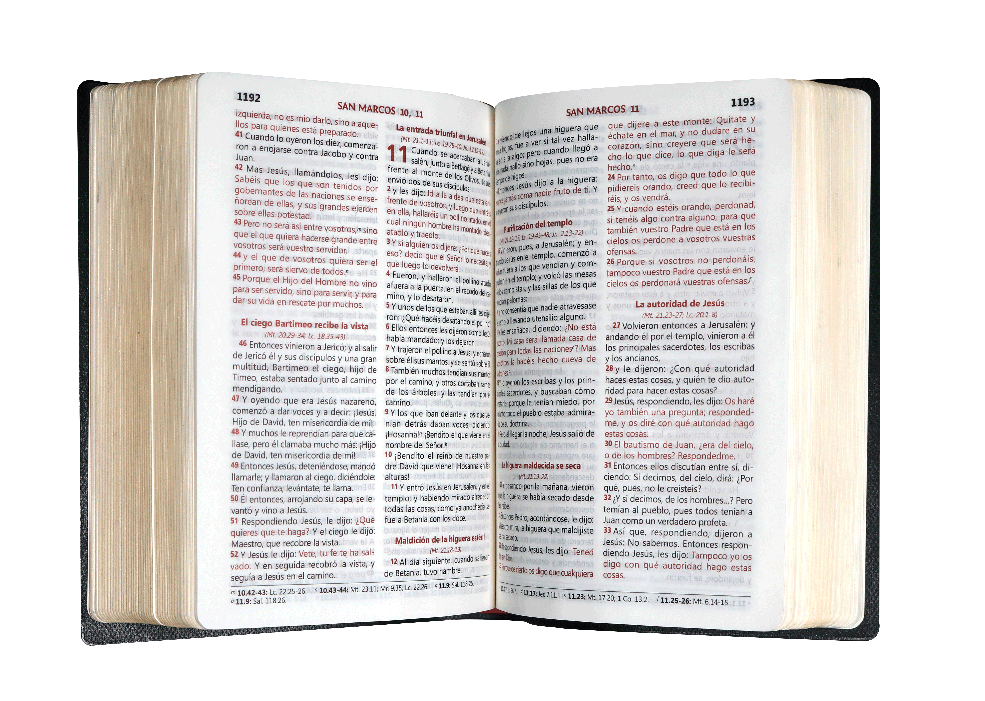 1192
SAN MARCOS 10, 11
izquierda, no es mío darlo, sino a aque-
llos para quienes está preparado.
41 Cuando lo oyeron los diez, comenza-
ron a enojarse contra Jacobo y contra
Juan.
42 Mas Jesús, llamándolos, les dijo:
Sabéis que los que son tenidos por
gobernantes de las naciones se ense-
ñorean de ellas, y sus grandes ejercen
sobre ellas potestad.
43 Pero no será así entre vosotros, sino
que el que quiera hacerse grande entre
vosotros será vuestro servidor,
44 y el que de vosotros quiera ser el
primero, será siervo de todos.
45 Porque el Hijo del Hombre no vino
para ser servido, sino para servir, y para
dar su vida en rescate por muchos.
El ciego Bartimeo recibe la vista
(Mt. 20.29-34; Lc. 18.35-43)
46 Entonces vinieron a Jericó; y al salir
de Jericó él y sus discípulos y una gran
multitud, Bartimeo el ciego, hijo de
Timeo, estaba sentado junto al camino
mendigando.
47 Y oyendo que era Jesús nazareno,
comenzó a dar voces y a decir: ¡Jesús,
Hijo de David, ten misericordia de mí!
48 Y muchos le reprendían para que ca-
llase, pero él clamaba mucho más: ¡Hijo
de David, ten misericordia de mí!
49 Entonces Jesús, deteniéndose, mandó
llamarle; y llamaron al ciego, diciéndole:
Ten confianza; levántate, te llama.
50 Él entonces, arrojando su capa, se le-
vantó y vino a Jesús.
51 Respondiendo Jesús, le dijo: ¿Qué
quieres que te haga? Y el ciego le dijo:
Maestro, que recobre la vista.
52 Y Jesús le dijo: Vete, tu fe te ha sal-
vado. Y en seguida recobró la vista, y
seguía a Jesús en el camino.
La entrada triunfal en Jerusalén
11 Cuando se acercaban a Jeru-
salén, junto a Betfagé y a Betania,
frente al monte de los Olivos, Jesús
envió dos de sus discípulos,
2 y les dijo: Id a la aldea que está en-
frente de vosotros, y luego que entréis
en ella, hallaréis un pollino atado, en el
cual ningún hombre ha montado; des-
atadlo y traedlo.
3 Y si alguien os dijere: ¿Por qué hacéis
eso? decid que el Señor lo necesita, y
que luego lo devolverá.
4 Fueron, y hallaron el pollino atado
afuera a la puerta, en el recodo del ca-
mino, y lo desataron.
5 Y unos de los que estaban allí les dije-
ron: ¿Qué hacéis desatando el pollino?
6 Ellos entonces les dijeron como Jesús
había mandado; y los dejaron.
7 Y trajeron el pollino a Jesús, y echaron
sobre él sus mantos, y se sentó sobre él.
8 También muchos tendían sus mantos
por el camino, y otros cortaban ramas
de los árboles, y las tendían por el
camino.
9 Y los que iban delante y los que ve-
nían detrás daban voces, diciendo:
¡Hosanna! ¡Bendito el que viene en el
nombre del Señor!
10 ¡Bendito el reino de nuestro pa-
dre David que viene! ¡Hosanna en las
alturas!
11 Y entró Jesús en Jerusalén, y en el
templo; y habiendo mirado alrededor
todas las cosas, como ya anochecía, se
fue a Betania con los doce.
Maldición de la higuera estéril
(Mt. 21.18-19)
12 Al día siguiente, cuando salieron
de Betania, tuvo hambre.
10.42-43: Lc. 22.25-26. 10.43-44: Mt. 23.11; Mr. 9.35; Lc. 22.26. 11.9: Sal. 118.25.
11.9: Sal. 118.26.
SAN MARCOS 11
1193
de lejos una higuera que
hojas, fue a ver si tal vez halla-
algo; pero cuando llegó a
nada halló sino hojas, pues no era
de higos.
Jesús dijo a la higuera:
jamás coma nadie fruto de ti. Y
oyeron sus discípulos.
Purificación del templo
pues, a Jerusalén; y en-
Jesús en el templo, comenzó a
a los que vendían y com-
el templo; y volcó las mesas
y las sillas de los que
palomas;
consentía que nadie atravesase
llevando utensilio alguno.
les enseñaba, diciendo: ¿No está
Mi casa será llamada casa de
para todas las naciones? Mas
la habéis hecho cueva de
los escribas y los prin-
sacerdotes, y buscaban cómo
porque le tenían miedo, por
todo el pueblo estaba admira-
doctrina.
al llegar la noche, Jesús salió de
ciudad.
La higuera maldecida se seca
por la mañana, vieron
higuera se había secado desde
Pedro, acordándose, le dijo:
mira, la higuera que maldijiste
Jesús, les dijo: Tened
de cierto os digo que cualquiera
que dijere a este monte: Quítate y
échate en el mar, y no dudare en su
corazón, sino creyere que será he-
cho lo que dice, lo que diga le será
hecho.
24 Por tanto, os digo que todo lo que
pidiereis orando, creed que lo recibi-
réis, y os vendrá.
25 Y cuando estéis orando, perdonad,
si tenéis algo contra alguno, para que
también vuestro Padre que está en los
cielos os perdone a vosotros vuestras
ofensas.
26 Porque si vosotros no perdonáis,
tampoco vuestro Padre que está en los
cielos os perdonará vuestras ofensas.
La autoridad de Jesús
(Mt. 21.23-27; Lc. 20.1-8)
27 Volvieron entonces a Jerusalén; y
andando él por el templo, vinieron a él
los principales sacerdotes, los escribas
y los ancianos,
28 y le dijeron: ¿Con qué autoridad
haces estas cosas, y quién te dio auto-
ridad para hacer estas cosas?
29 Jesús, respondiendo, les dijo: Os haré
yo también una pregunta; responded-
me, y os diré con qué autoridad hago
estas cosas.
30 El bautismo de Juan, ¿era del cielo,
o de los hombres? Respondedme.
31 Entonces ellos discutían entre sí, di-
ciendo: Si decimos, del cielo, dirá: ¿Por
qué, pues, no le creísteis?
32 ¿Y si decimos, de los hombres...? Pero
temían al pueblo, pues todos tenían a
Juan como un verdadero profeta.
33 Así que, respondiendo, dijeron a
Jesús: No sabemos. Entonces respon-
diendo Jesús, les dijo: Tampoco yo os
digo con qué autoridad hago estas
cosas.
11.23: Mt. 17.20; 1 Co. 13.2. 11.25-26: Mt. 6.14-15.